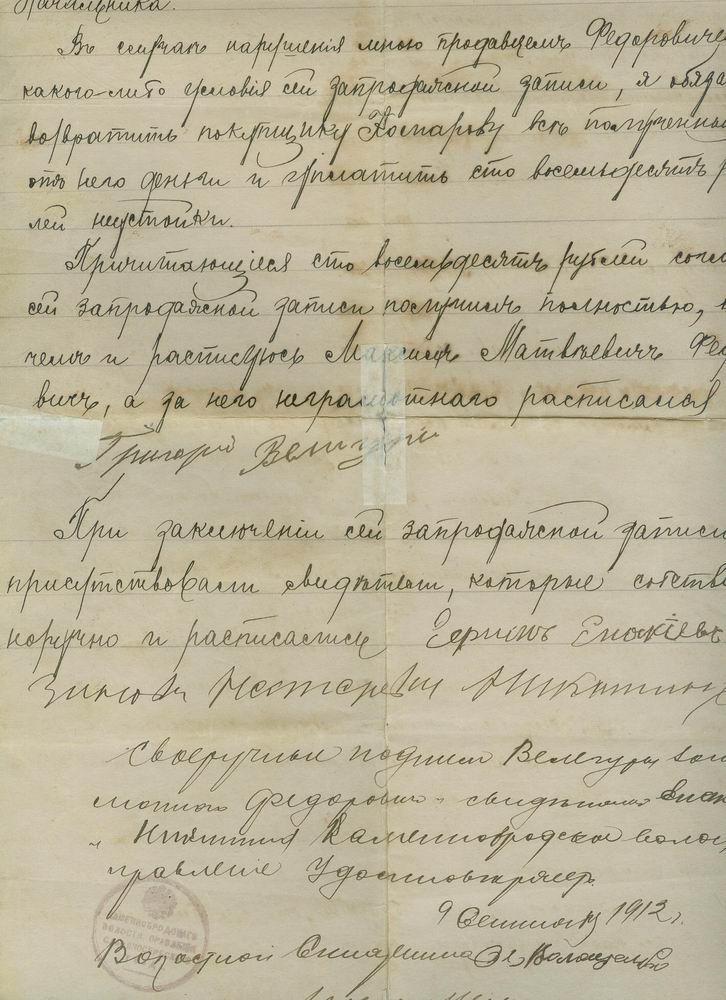 Начальника.
Въ случаѣ нарушенія мною продавцемъ Федоровиче
какого-либо условія сей запродажной записи, я обяза
возвратить покупщику Комарову всѣ полученныя
отъ него деньги и уплатить сто восемьдесятъ р
лей неустойки.
Причитающіеся сто восемьдесятъ рублей согл
сей запродажной записи получилъ полностью, в
чемъ и расписуюсь Максимъ Матвѣевичъ Фед
вичъ, а за него неграмотнаго расписался
Григорій Велегура
При заключеніи сей запродажной записи
присутствовали свидѣтели, которые собстве
норучно и расписались
Никитинъ
Своеручныя подписи Велегуры
Федоровича свидѣтелей
и Никитина Каменнобродское волос
правленіе Удостовѣряетъ.
9 1912 г.
Волостной Старшина